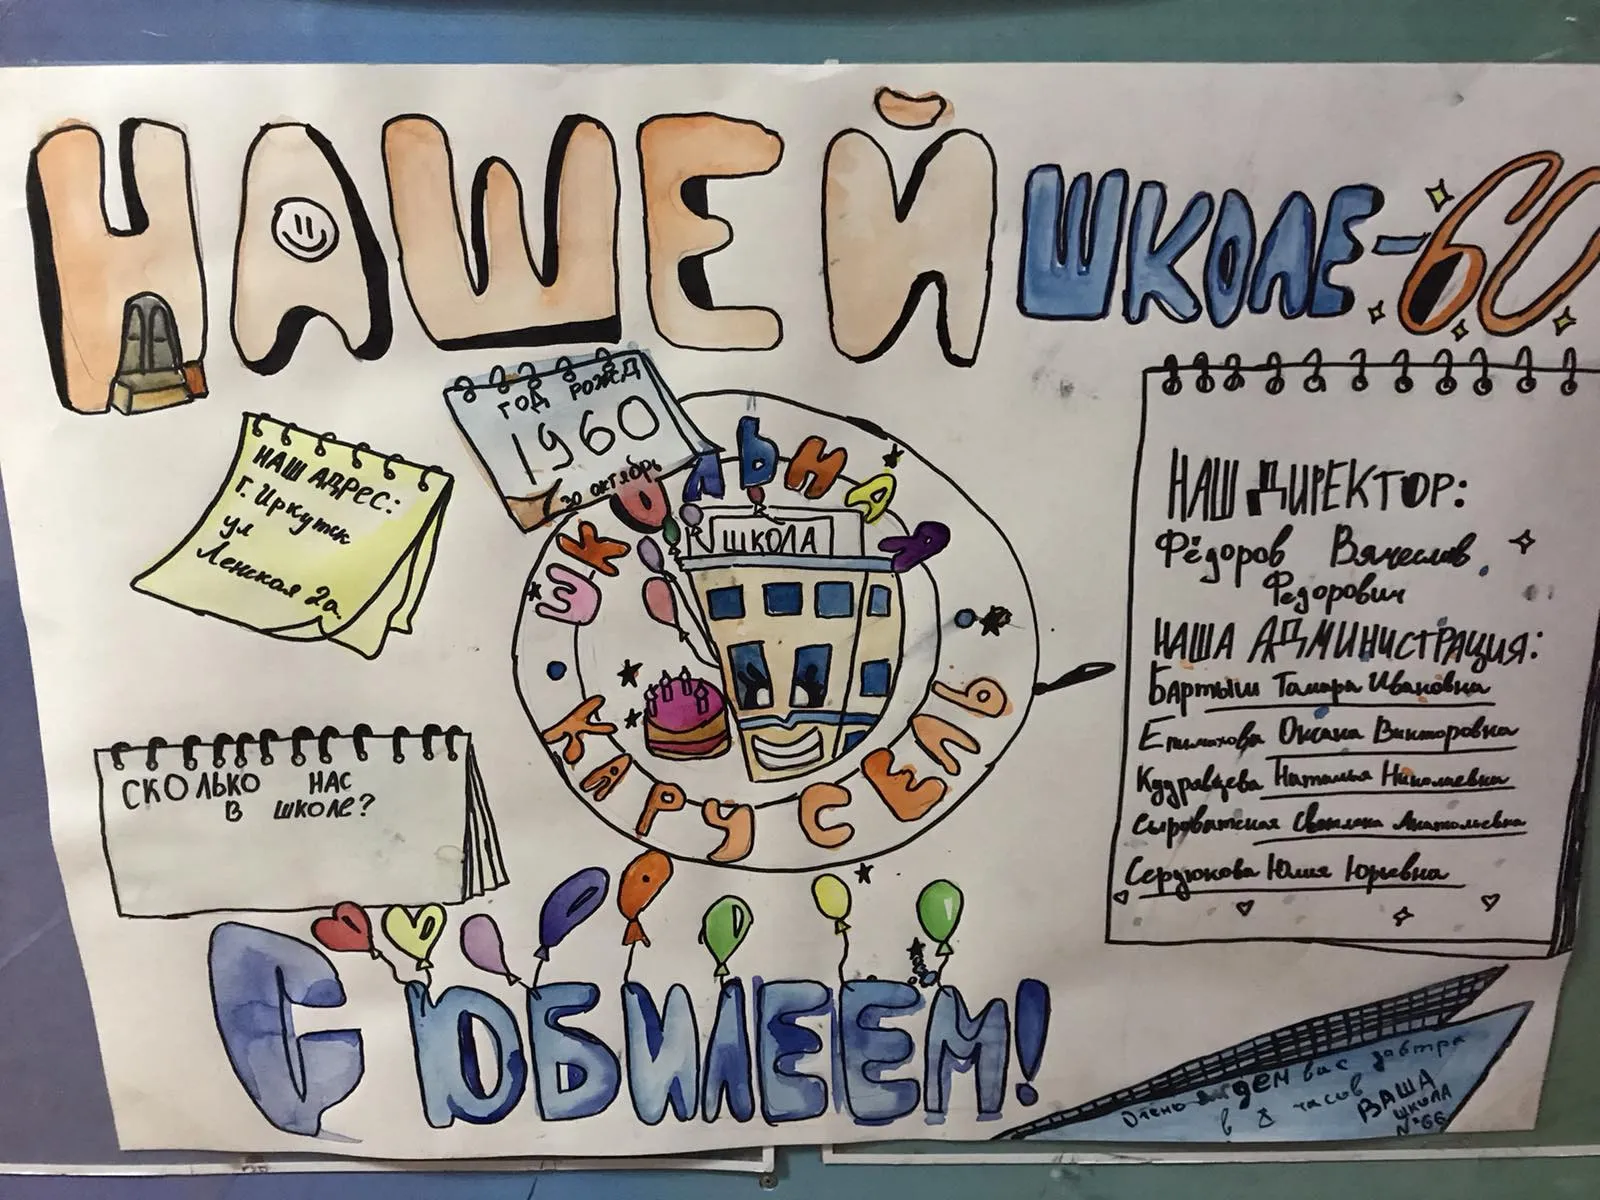 НАШЕЙ
ШКОЛЕ-60
ГОД РОЖД
1960
30 октябрь
НАШ АДРЕС:
г. Иркутск
ул
Ленская 2а
ШКОЛЬНАЯ
КАРУСЕЛЬ
ШКОЛА
СКОЛЬКО НАС
В ШКОЛЕ?
НАШ ДИРЕКТОР:
Фёдоров Вячеслав
Федорович
НАША АДМИНИСТРАЦИЯ:
Бартыш Тамара Ивановна
Епимахова Оксана Викторовна
Кудрявцева Наталья Николаевна
Сыроватская Светлана Анатольевна
Сердюкова Юлия Юрьевна
С ЮБИЛЕЕМ!
Очень ждем вас завтра
в 8 часов
ВАША
ШКОЛА
№66